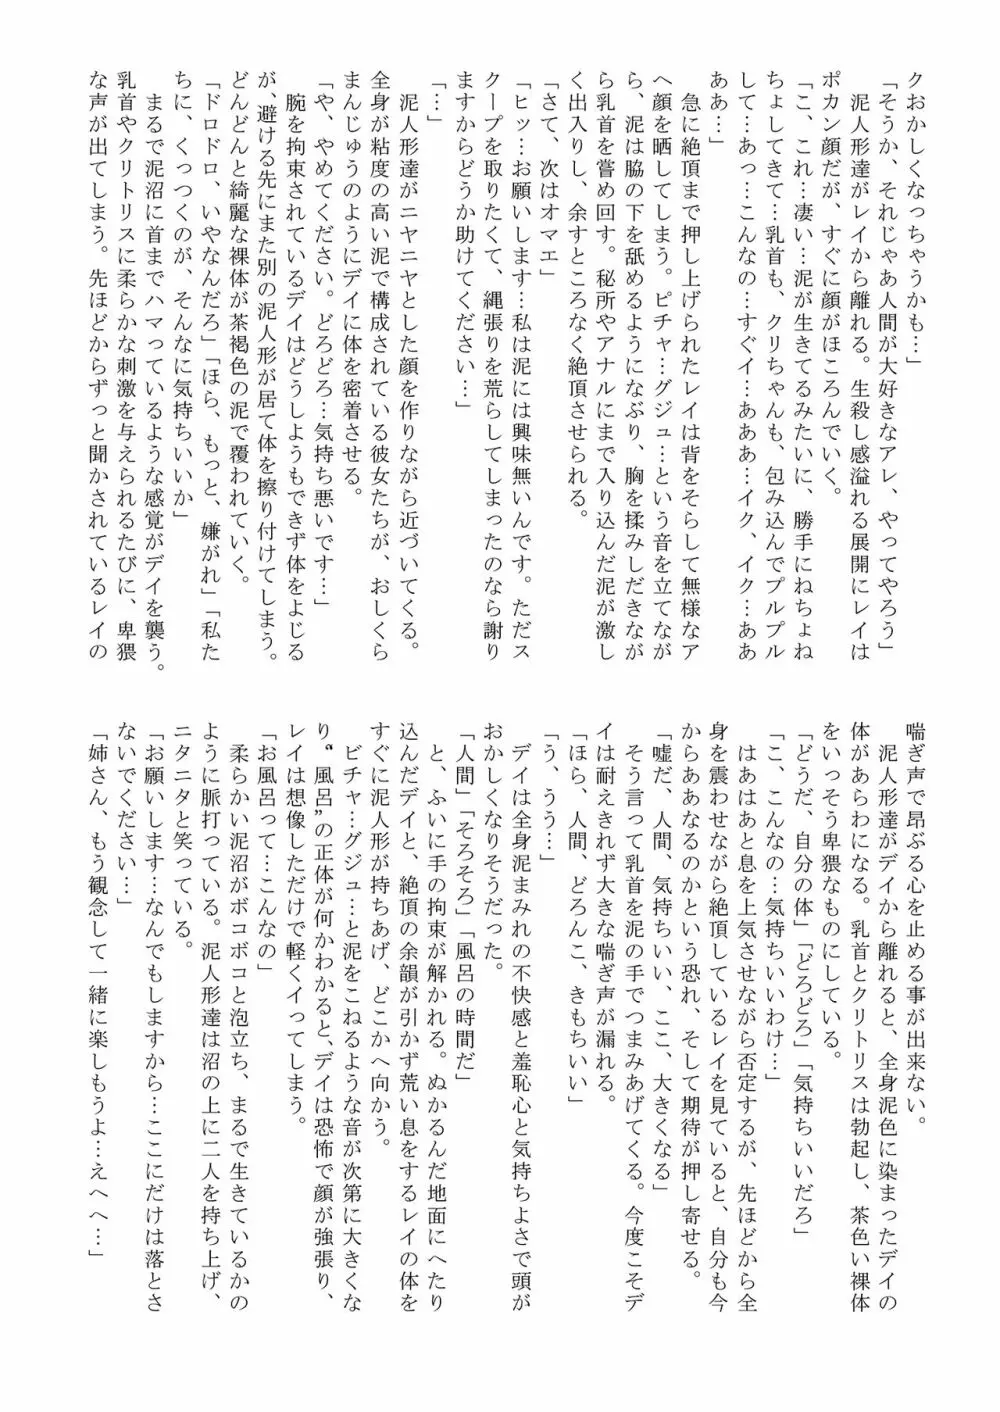 クおかしくなっちゃうかも…」
「そうか、それじゃあ人間が大好きなアレ、やってやろう」
　泥人形達がレイから離れる。生殺し感溢れる展開にレイは
ポカン顔だが、すぐに顔がほころんでいく。
「こ、これ…凄い…泥が生きてるみたいに、勝手にねちょね
ちょしてきて…乳首も、クリちゃんも、包み込んでプルプル
して…あっ…こんなの…すぐイ…あああ…イク、イク…ああ
ああ…」
　急に絶頂まで押し上げられたレイは背をそらして無様なア
ヘ顔を晒してしまう。ピチャ…グジュ…という音を立てなが
ら、泥は脇の下を舐めるようになぶり、胸を揉みしだきなが
ら乳首を嘗め回す。秘所やアナルにまで入り込んだ泥が激し
く出入りし、余すところなく絶頂させられる。
「さて、次はオマエ」
「ヒッ…お願いします…私は泥には興味無いんです。ただス
クープを取りたくて、縄張りを荒らしてしまったのなら謝り
ますからどうか助けてください…」
「…」
　泥人形達がニヤニヤとした顔を作りながら近づいてくる。
全身が粘度の高い泥で構成されている彼女たちが、おしくら
まんじゅうのようにデイに体を密着させる。
「や、やめてください。どろどろ…気持ち悪いです…」
　腕を拘束されているデイはどうしようもできず体をよじる
が、避ける先にまた別の泥人形が居て体を擦り付けてしまう。
どんどんと綺麗な裸体が茶褐色の泥で覆われていく。
「ドロドロ、いやなんだろ」「ほら、もっと、嫌がれ」「私た
ちに、くっつくのが、そんなに気持ちいいか」
　まるで泥沼に首までハマっているような感覚がデイを襲う。
乳首やクリトリスに柔らかな刺激を与えられるたびに、卑猥
な声が出てしまう。先ほどからずっと聞かされているレイの
喘ぎ声で昂ぶる心を止める事が出来ない。
　泥人形達がデイから離れると、全身泥色に染まったデイの
体があらわになる。乳首とクリトリスは勃起し、茶色い裸体
をいっそう卑猥なものにしている。
「どうだ、自分の体」「どろどろ」「気持ちいいだろ」
「こ、こんなの…気持ちいいわけ…」
　はあはあと息を上気させながら否定するが、先ほどから全
身を震わせながら絶頂しているレイを見ていると、自分も今
からああなるのかという恐れ、そして期待が押し寄せる。
「嘘だ、人間、気持ちいい、ここ、大きくなる」
　そう言って乳首を泥の手でつまみあげてくる。今度こそデ
イは耐えきれず大きな喘ぎ声が漏れる。
「ほら、人間、どろんこ、きもちいい」
「う、うう…」
　デイは全身泥まみれの不快感と羞恥心と気持ちよさで頭が
おかしくなりそうだった。
「人間」「そろそろ」「風呂の時間だ」
　と、ふいに手の拘束が解かれる。ぬかるんだ地面にへたり
込んだデイと、絶頂の余韻が引かず荒い息をするレイの体を
すぐに泥人形が持ちあげ、どこかへ向かう。
　ビチャ…グジュ…と泥をこねるような音が次第に大きくな
り〝風呂〟の正体が何かわかると、デイは恐怖で顔が強張り、
レイは想像しただけで軽くイってしまう。
「お風呂って…こんなの」
　柔らかい泥沼がボコボコと泡立ち、まるで生きているかの
ように脈打っている。泥人形達は沼の上に二人を持ち上げ、
ニタニタと笑っている。
「お願いします…なんでもしますから…ここにだけは落とさ
ないでください…」
「姉さん、もう観念して一緒に楽しもうよ…えへへ…」